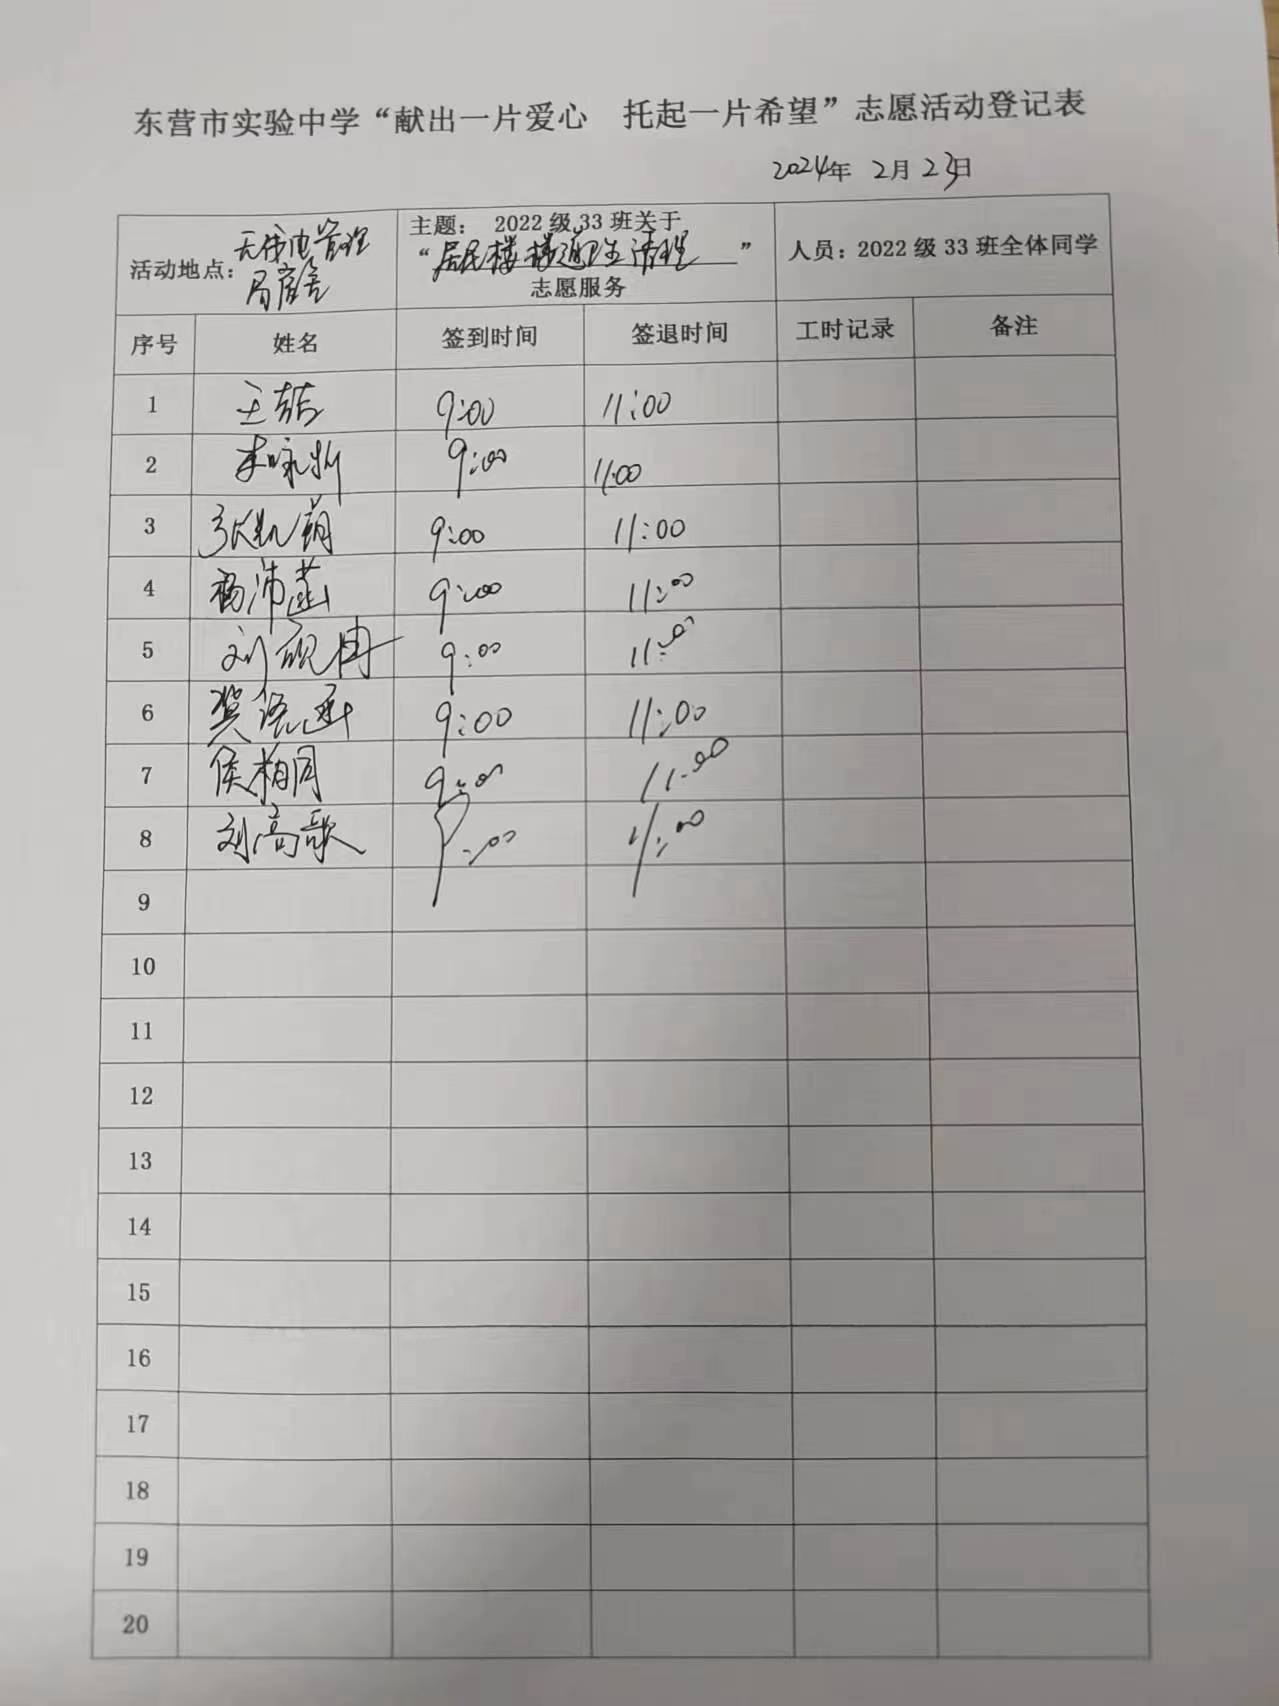 东营市实验中学“献出一片爱心 托起一片希望”志愿活动登记表
2024年 2月 23日
活动地点：无线电管理局宿舍
主题： 2022 级 33 班关于
“居民楼楼道卫生清理”
志愿服务
人员：2022 级 33 班全体同学
序号 姓名 签到时间 签退时间 工时记录 备注
1 王喆 9:00 11:00
2 李咏 9:00 11:00
3 张凯萌 9:00 11:00
4 杨沛菡 9:00 11:00
5 刘砚冉 9:00 11:00
6 龚语函 9:00 11:00
7 侯柏同 9:00 11:00
8 刘高歌 9:00 11:00
9
10
11
12
13
14
15
16
17
18
19
20